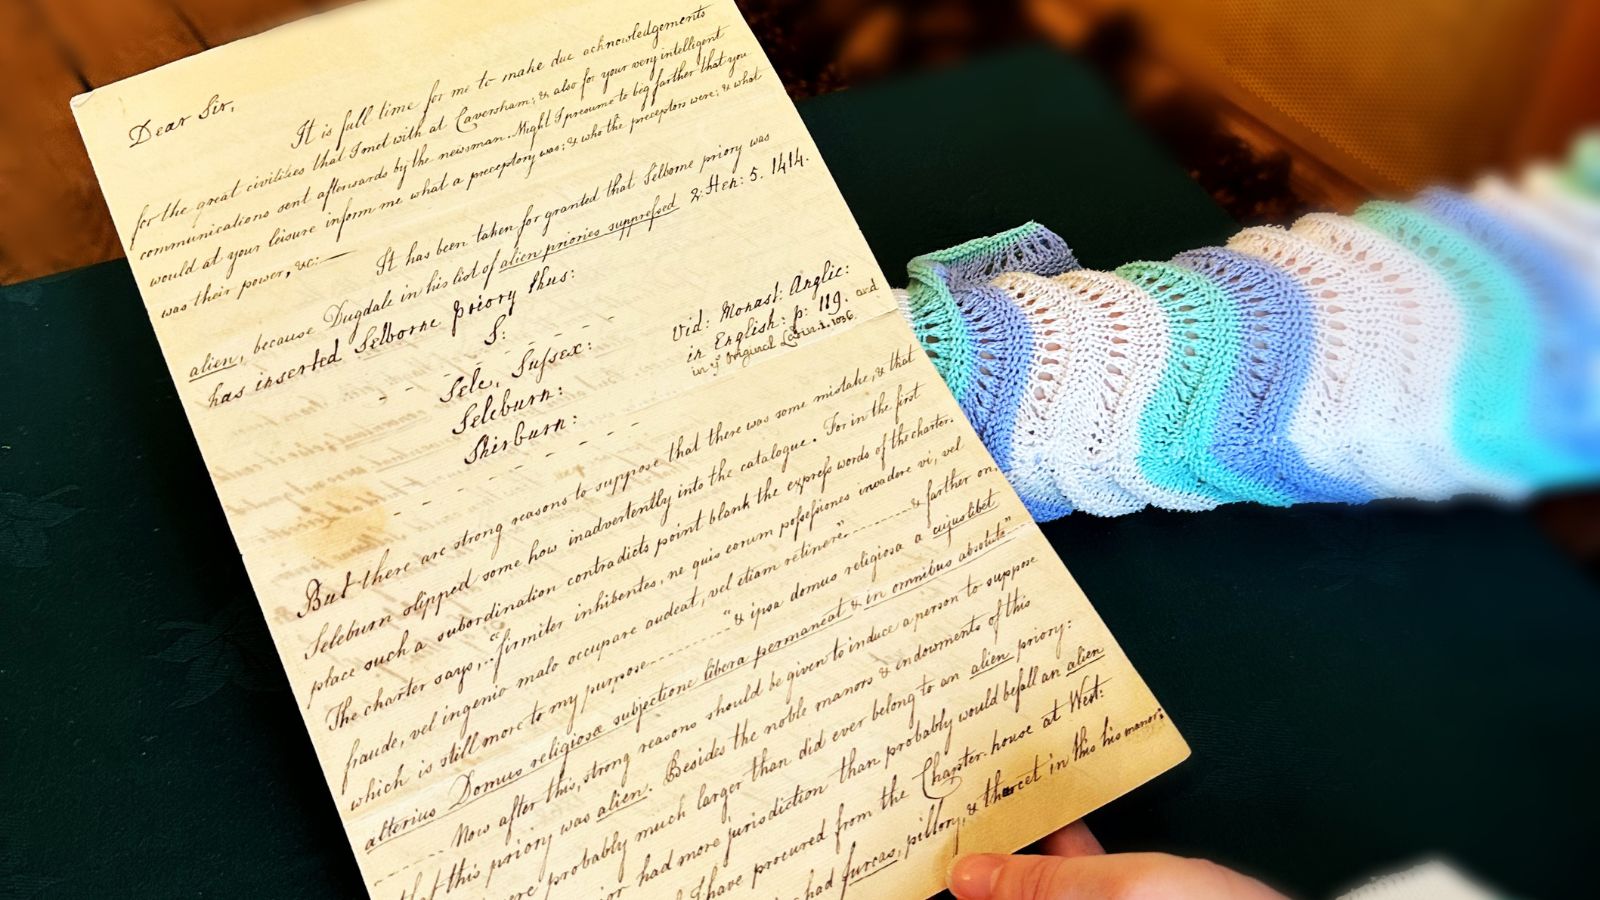 Dear Sir,
It is full time for me to make due acknowledgements
for the great civilities that I met with at Caversham; & also for your very intelligent
communications sent afterwards by the newsman. Might I presume to beg farther that you
would at your leisure inform me what a preceptory was: & who the preceptors were; & what
was their power, &c:
It has been taken for granted that Selborne priory was
alien, because Dugdale in his list of alien priories suppressed 2: Hen: 5. 1414.
has inserted Selborne Priory thus:
S:
Sele, Sussex:
Seleburn:
Shirburn:
Vid: Monast: Anglic:
in English: p: 119. and
in ye original Latin 1. 1036.
But there are strong reasons to suppose that there was some mistake, & that
Seleburn slipped some how inadvertently into the catalogue. For in the first
place such a subordination contradicts point blank the express words of the charter.
The charter says,.. "firmiter inhibentes, ne quis eorum possessiones invadere vi, vel
fraude, vel ingenio malo occupare audeat, vel etiam retinere" & farther on,
which is still more to my purpose "& ipsa domus religiosa a cujuslibet
alterius Domus religiosæ subjectione libera permaneat & in omnibus absoluta"
Now after this, strong reasons should be given to induce a person to suppose
that this priory was alien. Besides the noble manors & endowments of this
were probably much larger than did ever belong to an alien priory:
had more jurisdiction than probably would befall an alien
I have procured from the Chapter-house at West:
had furcas, pillory, & thurcet in this his manor: